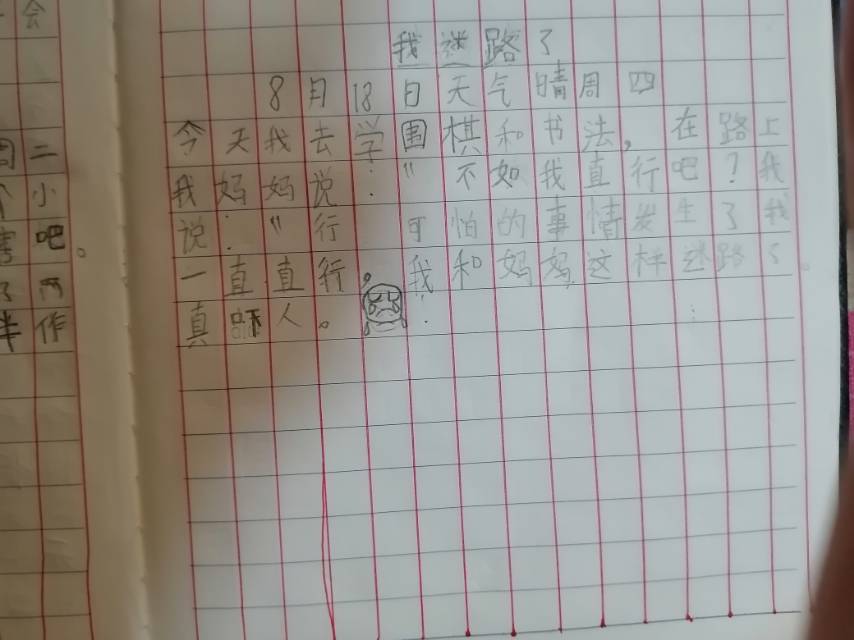 会
二
小
吧。
作
我迷路了
8月18日天气晴周四
今天我去学围棋和书法，在路上
我妈妈说：“不如我直行吧？我
说：“行 可怕的事情发生了我
一直直行。我和妈妈这样迷路了。
真吓人。